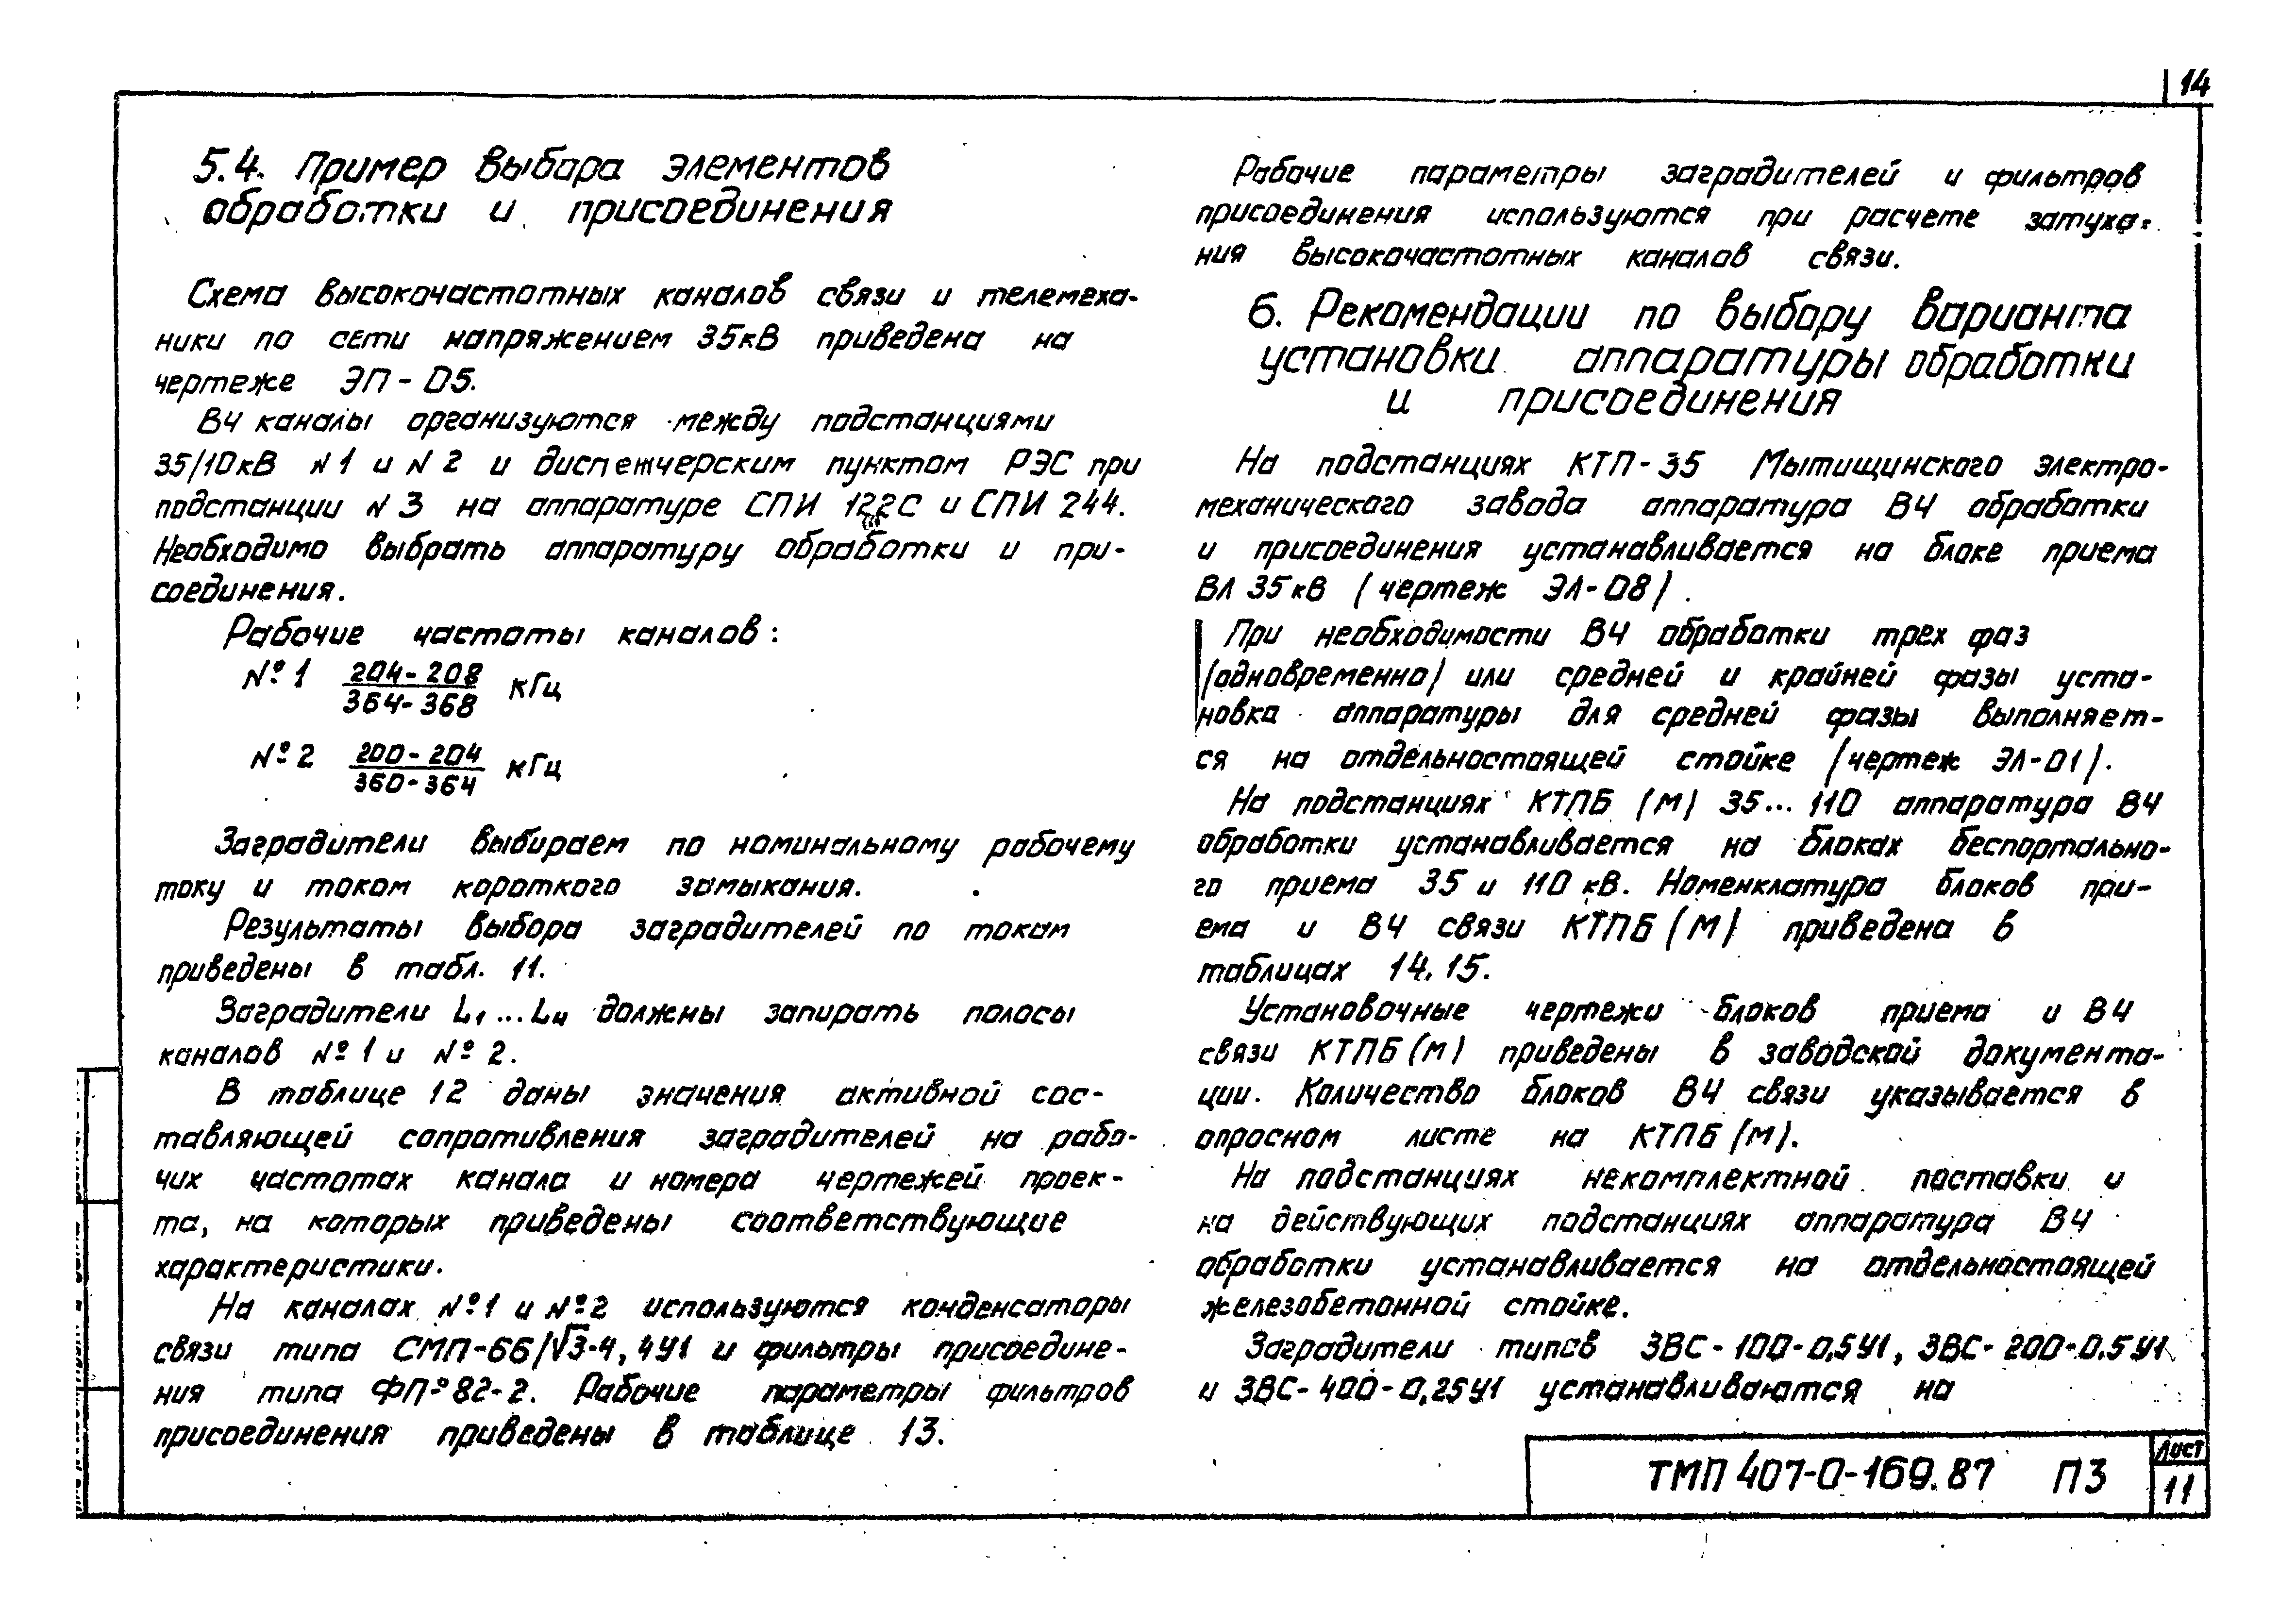 14
5.4. Пример выбора элементов
обработки и присоединения
Схема высокочастотных каналов связи и телемеха-
ники по сети напряжением 35кВ приведена на
чертеже ЭП-05.
ВЧ каналы организуются между подстанциями
35/10кВ N1 и N2 и диспетчерским пунктом РЭС при
подстанции N3 на аппаратуре СПИ 122С и СПИ 244.
Необходимо выбрать аппаратуру обработки и при-
соединения.
Рабочие частоты каналов:
№1 204-208/364-368 кГц
№2 200-204/360-364 кГц
Заградители выбираем по номинальному рабочему
току и током короткого замыкания.
Результаты выбора заградителей по токам
приведены в табл. 11.
Заградители L₁...L₄ должны запирать полосы
каналов №1 и №2.
В таблице 12 даны значения активной сос-
тавляющей сопротивления заградителей на рабо-
чих частотах канала и номера чертежей проек-
та, на которых приведены соответствующие
характеристики.
На каналах №1 и №2 используются конденсаторы
связи типа СМП-66/√3-4,4У1 и фильтры присоедине-
ния типа ФП-82-2. Рабочие параметры фильтров
присоединения приведены в таблице 13.
Рабочие параметры заградителей и фильтров
присоединения используются при расчете затуха-
ния высокочастотных каналов связи.
6. Рекомендации по выбору варианта
установки аппаратуры обработки
и присоединения
На подстанциях КТП-35 Мытищинского электро-
механического завода аппаратура ВЧ обработки
и присоединения устанавливается на блоке приема
ВЛ 35кВ (чертеж ЭЛ-08).
При необходимости ВЧ обработки трех фаз
(одновременно) или средней и крайней фазы уста-
новка аппаратуры для средней фазы выполняет-
ся на отдельностоящей стойке (чертеж ЭЛ-01).
На подстанциях КТПБ (М) 35...110 аппаратура ВЧ
обработки устанавливается на блоках беспортально-
го приема 35 и 110 кВ. Номенклатура блоков при-
ема и ВЧ связи КТПБ(М) приведена в
таблицах 14.15.
Установочные чертежи блоков приема и ВЧ
связи КТПБ(М) приведены в заводской документа-
ции. Количество блоков ВЧ связи указывается в
опросном листе на КТПБ(М).
На подстанциях некомплектной поставки и
на действующих подстанциях аппаратура ВЧ
обработки устанавливается на отдельностоящей
железобетонной стойке.
Заградители типов ЗВС-100-0,5У1, ЗВС-200-0.5У1
и ЗВС-400-0,25У1 устанавливаются на
ТМП 407-0-169.87 ПЗ
Лист
11